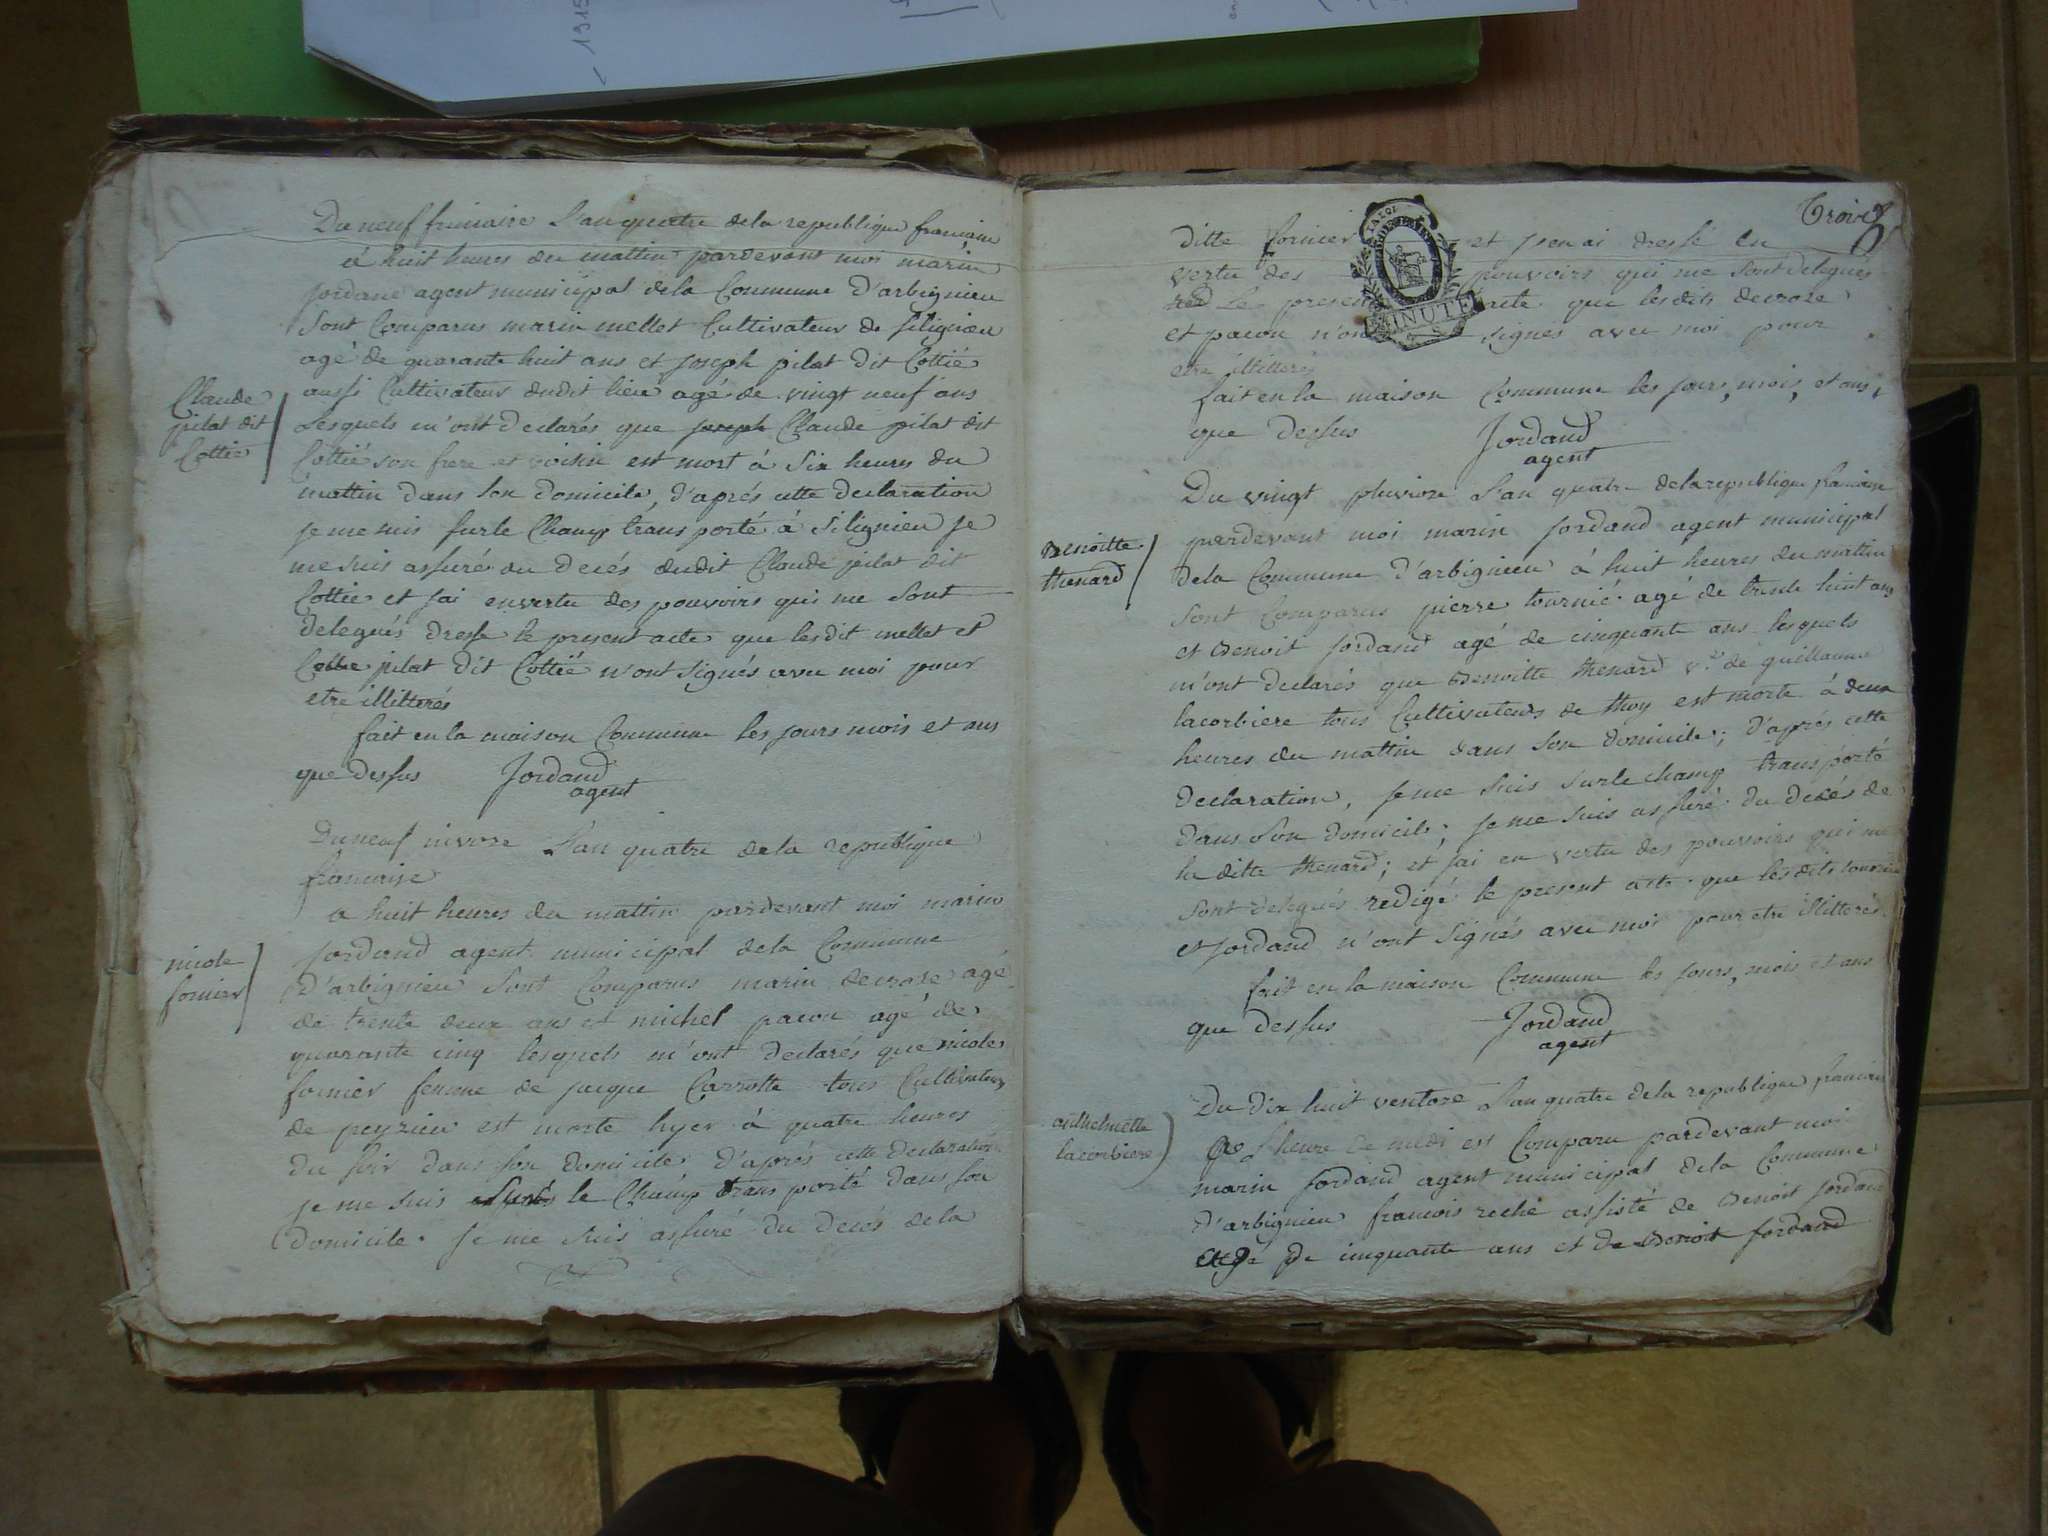 1915
Du neuf frimaire L'an quatre dela republique francaise
à huit heures du mattin pardevant moi marin
jordand agent municipal dela Commune d'arbignieu
sont Comparus marin mellet Cultivateur de silignieu
agé de quarante huit ans et joseph pilat dit Cottié
aussi Cultivateur dudit lieu agé de vingt neuf ans
Claude
pilat dit
Cottié
Lesquels m'ont declarés que joseph Claude pilat dit
Cottié son frere et voisin est mort à six heures du
mattin dans son domicile, d'aprés cette declaration
je me suis sur le Champ transporté à silignieu je
me suis assuré du decés dudit Claude pilat dit
Cottié et jai en vertu des pouvoirs qui me sont
delegués dressé le present acte que lesdit mellet et
pilat dit Cottié n'ont signés avec moi pour
etre illitterés
fait en la maison Commune les jours mois et ans
que dessus Jordand
agent
Du neuf nivose L'an quatre dela republique
francaise
a huit heures du mattin pardevant moi marin
nicole
fornier
jordand agent municipal dela Commune
d'arbignieu sont Comparus marin decroze agé
de trente deux ans et michel pacon agé de
quarante cinq lesquels m'ont declarés que nicole
fornier femme de jacque Carrotte tous Cultivateurs
de peyzieu est morte hyer à quatre heures
du soir dans son domicile d'aprés cette declaration
je me suis le Champ transporté dans son
domicile. je me suis assuré du decés dela
Troix
ditte fornier et j'en ai dressé en
vertu des pouvoirs qui me sont delegués
Le present acte que les dits decroze
et pacon n'ont signés avec moi pour
etre illitterés
LA LOI
MINUTE
fait en la maison Commune les jours, mois, et ans,
que dessus Jordand
agent
Du vingt pluviose L'an quatre dela republique francaise
Benoitte
thenard
pardevant moi marin jordand agent municipal
dela Commune d'arbignieu à huit heures du mattin
sont Comparus pierre tournié agé de trente huit ans
et Benoit jordand agé de cinquante ans lesquels
m'ont declarés que Benoitte thenard v.ve de guillaume
lacorbiere tous Cultivateurs de thoy est morte à deux
heures du mattin dans son domicile; d'aprés cette
declaration, je me suis sur le champ transporté
dans son domicile; je me suis assuré du decés de
la ditte thenard; et jai en vertu des pouvoirs qui me
sont delegués redigé le present acte que les dits tournié
et jordand n'ont signés avec moi pour etre illitterés.
fait en la maison Commune les jours, mois et ans
que dessus Jordand
agent
Du dix huit ventose L'an quatre dela republique francaise
anthelmette
lacorbiere
l'heure de midi est Comparu pardevant moi
marin jordand agent municipal dela Commune
d'arbignieu francois roche assisté de Benoit jordand
agé de cinquante ans et de Benoit jordand